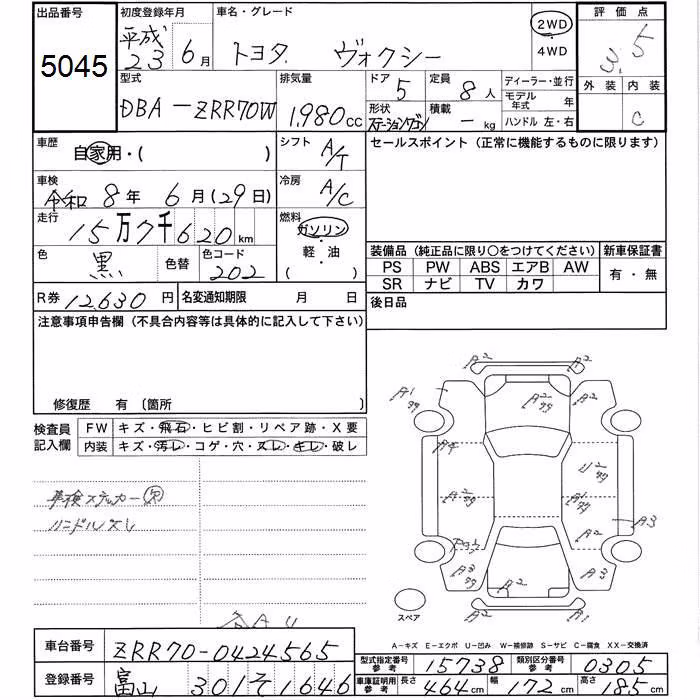 出品番号 初度登録年月 車名・グレード 評価点
5045 平成23 6月 トヨタ ヴォクシー 2WD 4WD 3.5
型式 排気量 ドア 5 定員 8人 ディーラー・並行 外装 内装
DBA-ZRR70W 1,980cc 形状 ステーションワゴン 積載 -kg モデル年式 年 ハンドル 左・右 C
車歴 自家用・( ) シフト A/T セールスポイント(正常に機能するものに限ります)
車検 令和8年6月(29日) 冷房 A/C
走行 15万7千620km 燃料 ガソリン・軽・油 ( )
色 黒 色替 色コード 202
装備品(純正品に限り○をつけてください) 新車保証書
PS PW ABS エアB AW 有・無
SR ナビ TV カワ
R券 12,630円 名変通知期限 月 日 後日品
注意事項申告欄(不具合内容等は具体的に記入して下さい)
修復歴 有 〔箇所 〕
検査員記入欄 FW キズ・飛石・ヒビ割・リペア跡・X要
内装 キズ・汚レ・コゲ・穴・スレ・キレ・破レ
車検ステッカー欠
ハンドルスレ
A2 A2
A1 99 A2 99
A4 U2 99
A2 99 A2 99
A3
A2
A3 99 A2 A3
A2 A1
スペア
A-キズ E-エクボ U-凹み W-補修跡 S-サビ C-腐食 XX-交換済
車台番号 ZRR70-0424565
型式指定番号 参考 15738 類別区分番号 参考 0305
登録番号 富山 301 そ 1646
車庫証明用 参考 長さ 464cm 幅 172cm 高さ 185cm